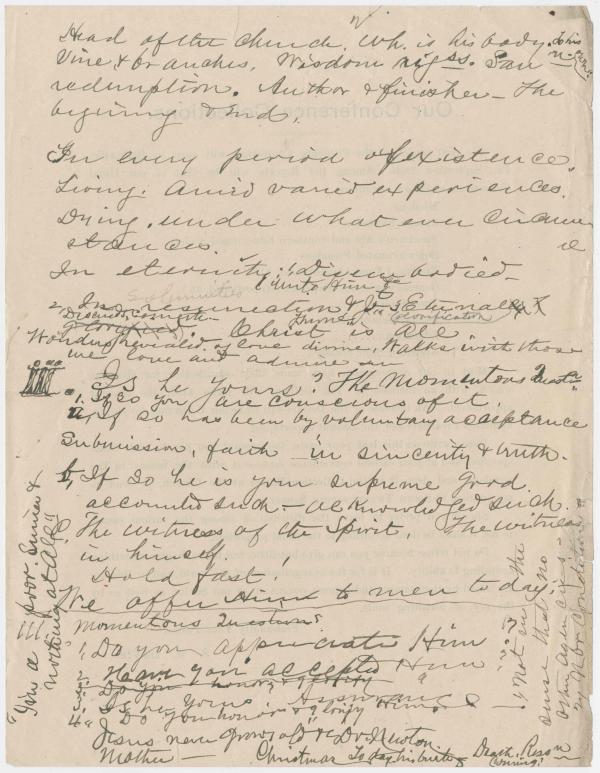 Head of the Church. Wh. is his body.
Vine & branches, Wisdom rigss. San
redemption. Author & finisher - The
begining & End.
In every period of existence
Living. Amid varied experiences.
Dying. under what ever Circum
stances.
In eternity.
"Unto Him
Solemnities
2, In resurrection & J Eternal
Glorification
Glorified. Christ is All
Wonders revealed of love divine, Walks with those
we love and admire
III. Is he yours? The Momentous Quest
1. If so you are conscious of it.
a, If so has been by voluntary acceptance
Submission, faith in sincerity & truth.
b, If so he is your supreme good.
accounted such - acknowledged such.
C The witness of the Spirit. The witness
in himself.
Hold fast!
We offer Him to men to day.
III Momentous Questions.
1, Do you appreciate Him
2. Have you accepted Him
3. Do you honor & glorify "
Is he Yours. Assurance
4. Do you honor & glorify Him.
Jesus never grows old Dr. Newton
Mother - Christmas To day his birth Death. Reson
Coming!
"I'm a poor sinner &
nothing at all"
"Not in the
sense that no
other agencies